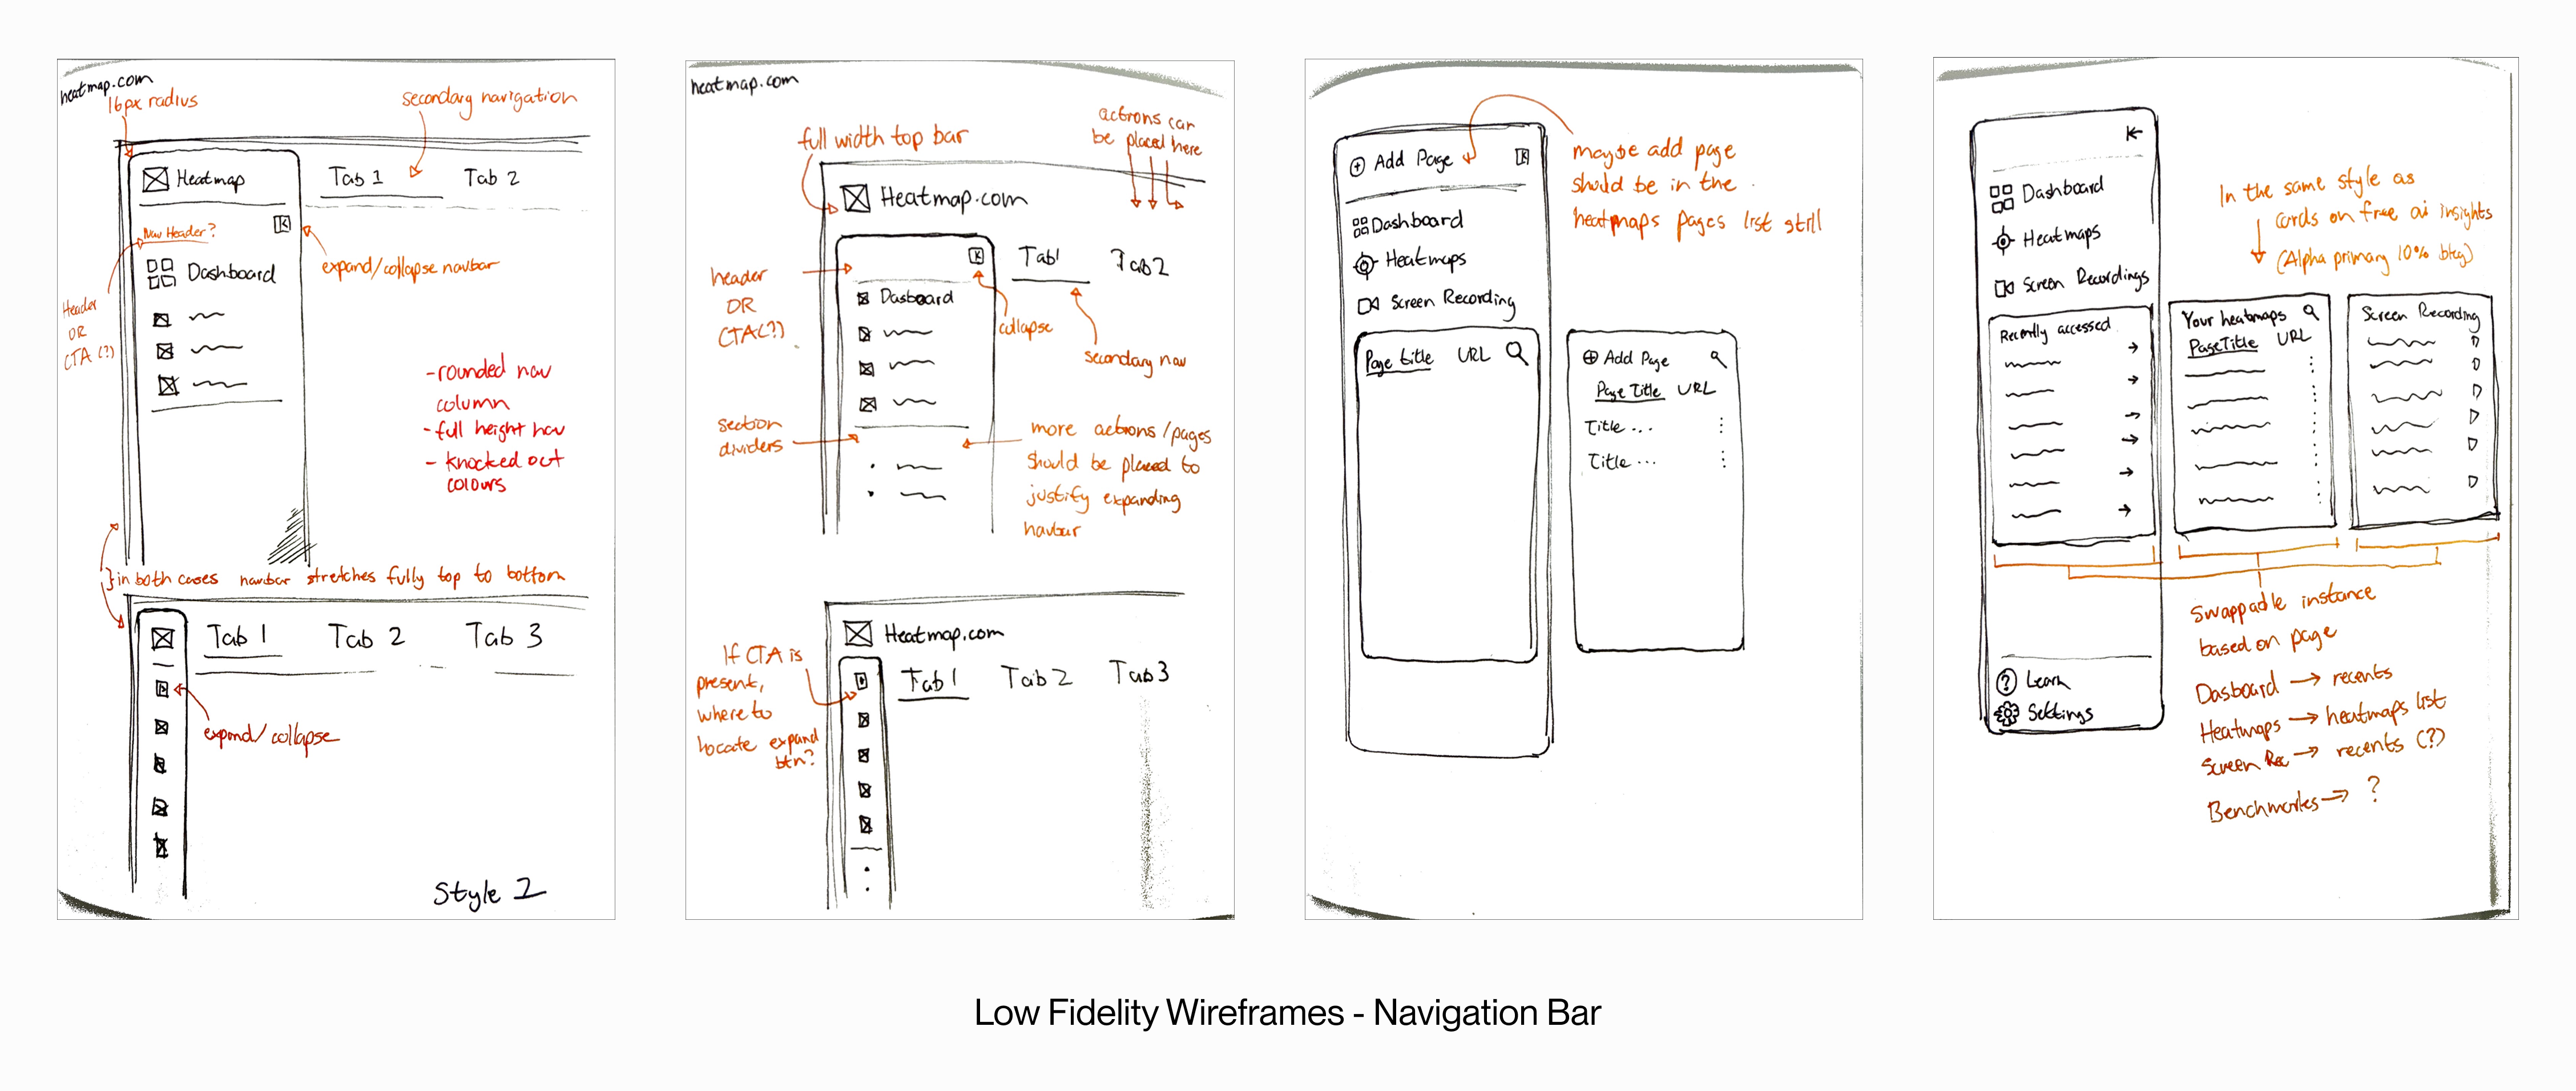 heatmap.com
16px radius
secondary navigation
Heatmap
Tab 1
Tab 2
Nav Header?
expand/collapse navbar
Dashboard
Header
OR
CTA (?)
-rounded nav
column
-full height nav
- knocked out
colours
in both cases navbar stretches fully top to bottom
Tab 1
Tab 2
Tab 3
expand/collapse
Style 2
heatmap.com
actions can
be placed here
full width top bar
Heatmap.com
Tab1
Tab2
header
OR
CTA(?)
Dasboard
collapse
secondary nav
section
dividers
more actions/pages
should be placed to
justify expanding
navbar
Heatmap.com
If CTA is
present,
where to
locate expand
btn?
Tab 1
Tab 2
Tab 3
Add Page
maybe add page
should be in the
heatmaps pages list still
Dashboard
Heatmaps
Screen Recording
Page title URL
Add Page
Page Title URL
Title ...
Title ...
Dashboard
Heatmaps
Screen Recordings
In the same style as
cards on free ai insights
(Alpha primary 10% bkg)
Recently accessed
Your heatmaps
PageTitle URL
Screen Recording
Swappable instance
based on page
Dasboard → recents
Heatmaps → heatmaps list
Screen Rec → recents (?)
Benchmarks → ?
? Learn
Settings
Low Fidelity Wireframes - Navigation Bar